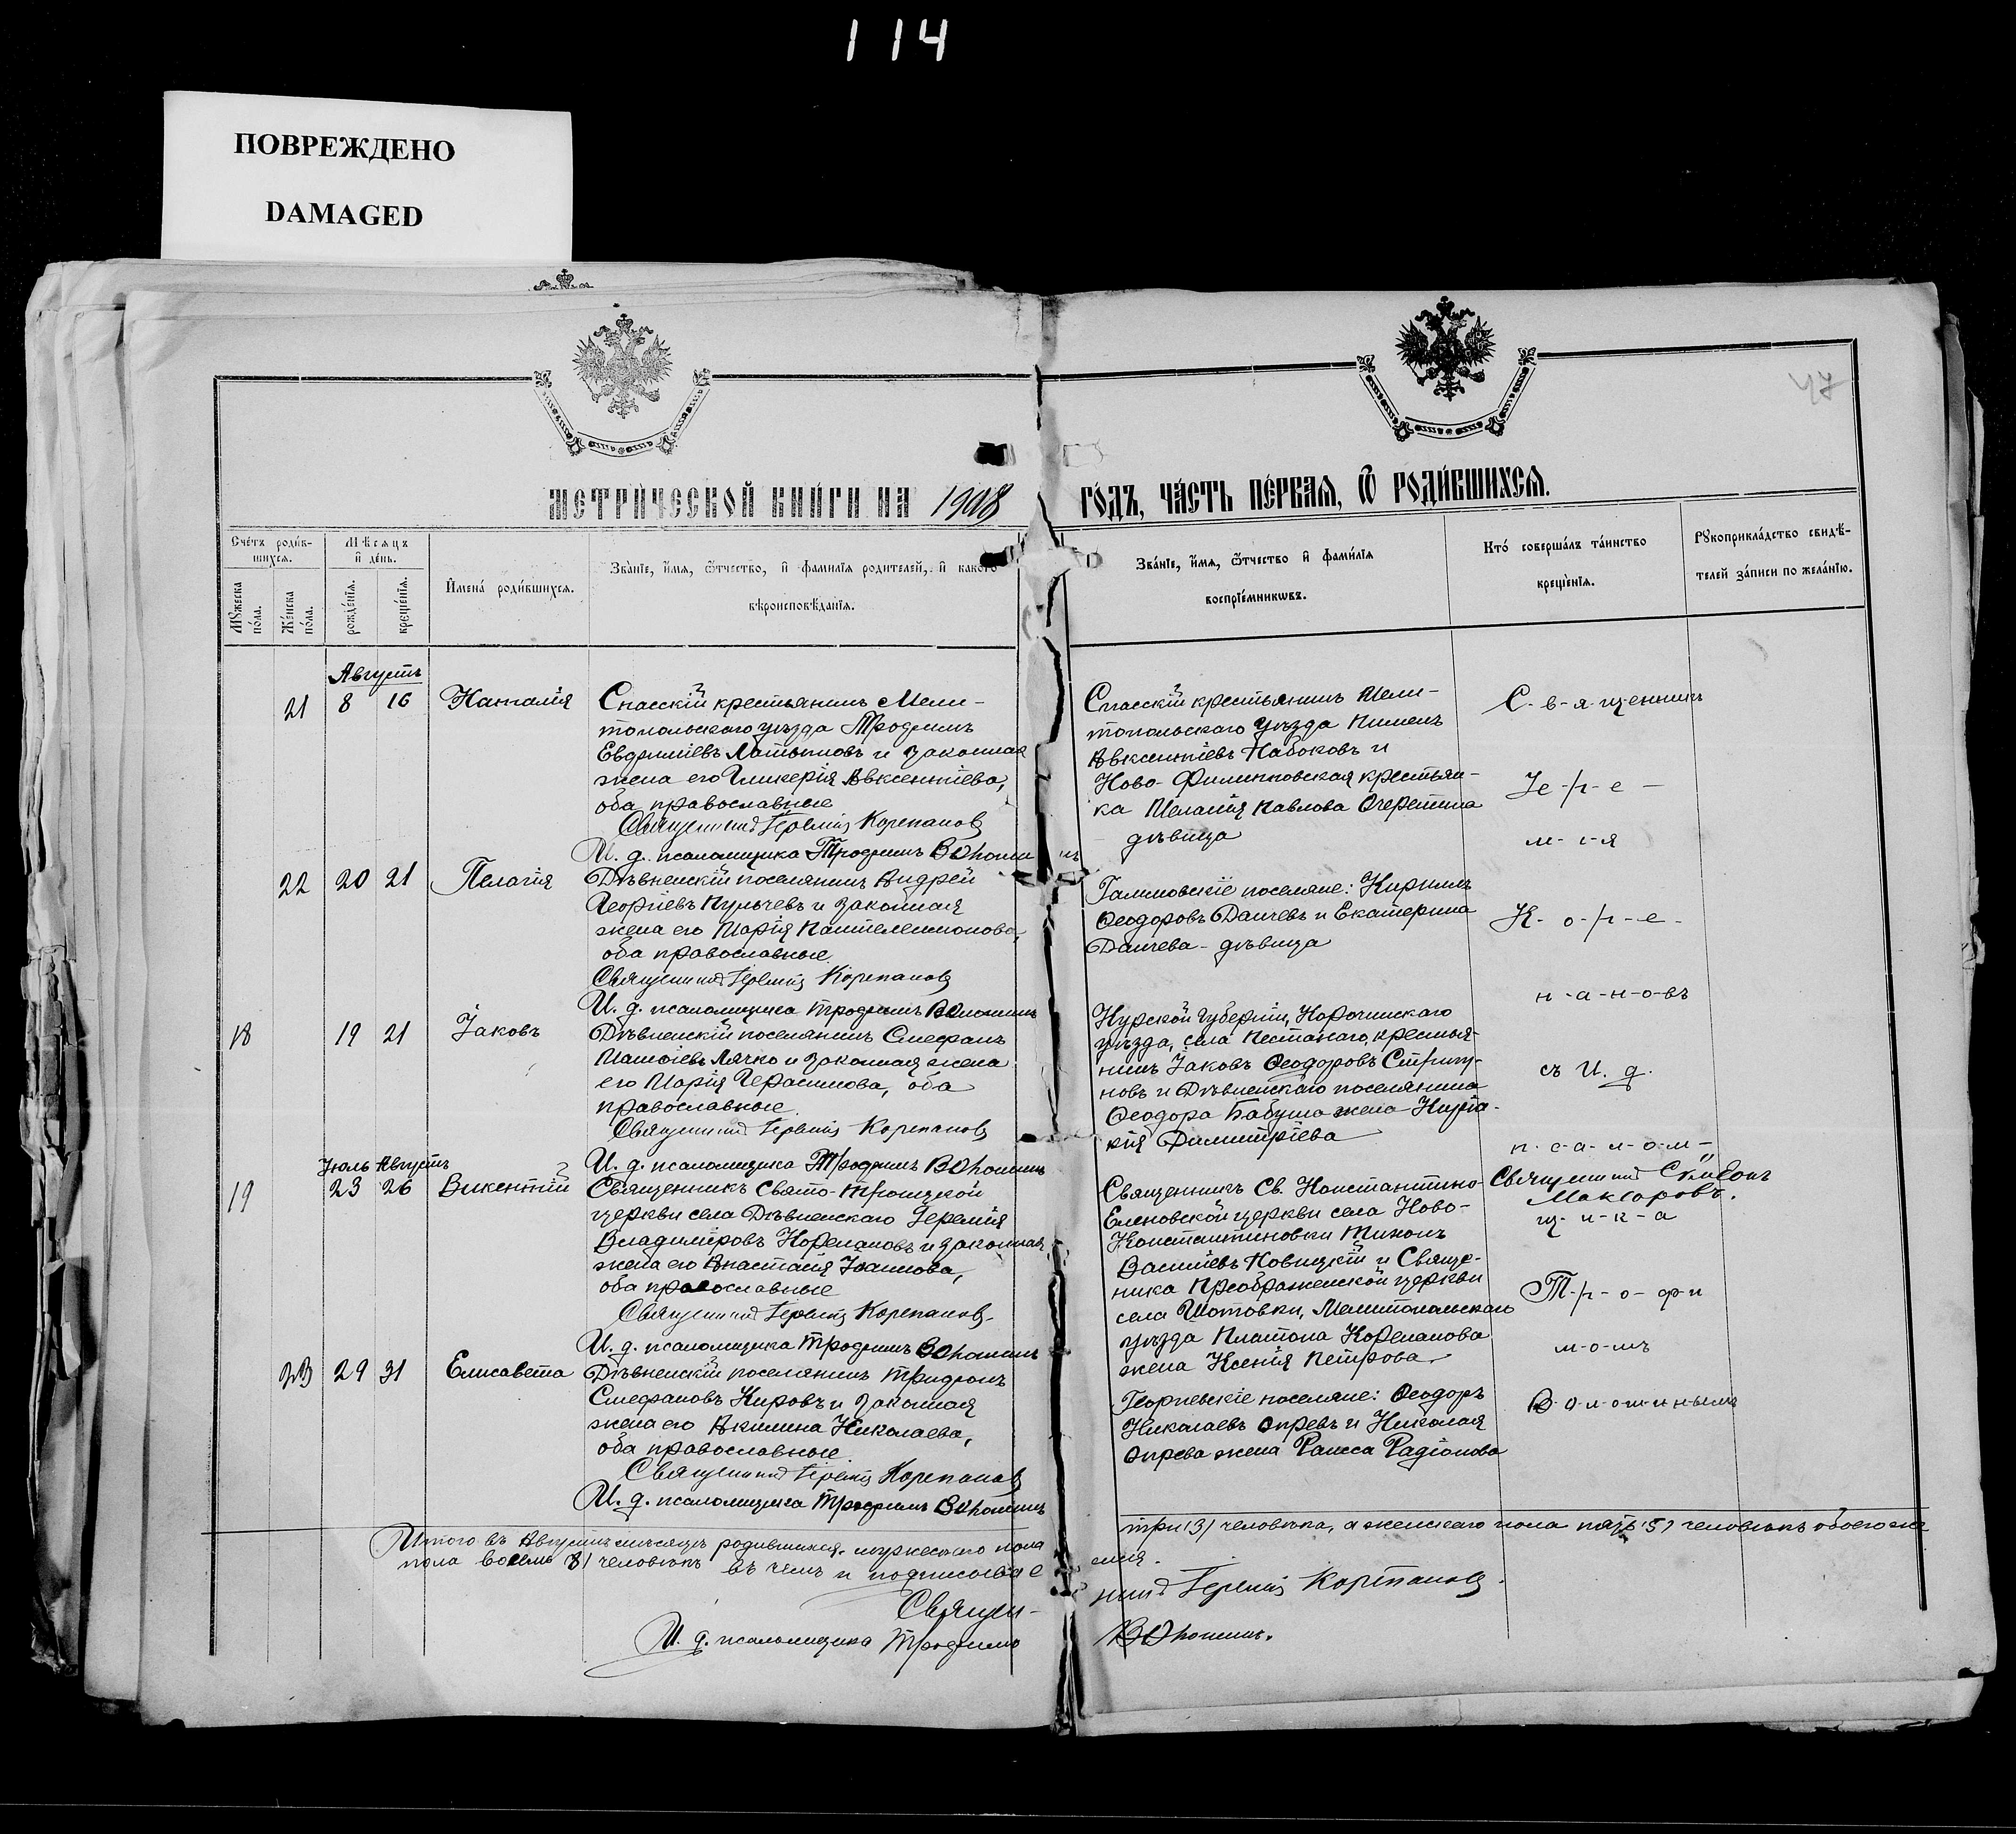 114
ПОВРЕЖДЕНО
DAMAGED
47
МЕТРИ́ЧЕСКОЙ КНИ́ГИ НА 1908 ГО́ДЪ, ЧА́СТЬ ПЕ́РВАЯ, Ѿ РОДИ́ВШИХСЯ.
Сче́тъ роди́в-
шихся.
Мѣ́сяцъ
и҆ де́нь.
Мꙋ́жеска
по́ла.
Же́нска
по́ла.
рожде́нїѧ.
креще́нїѧ.
И҆мена̀ роди́вшихсѧ.
Зва́нїе, и҆́мѧ, ѻ҆́тчество, и҆ фами́лїѧ роди́телей, и҆ какогѡ
вѣроисповѣ́данїѧ.
Зва́нїе, и҆́мѧ, ѻ҆́тчество и҆ фами́лїѧ
воспрїе́мникѡвъ.
Кто̀ соверша́лъ та́инство
креще́нїѧ.
Рꙋкоприкла́дство свидѣ́-
телей за́писи по жела́нїю.
Августъ
21 8 16 Наталія
Спасскій крестьянинъ Мели-
топольскаго уѣзда Трофимъ
Евфиміевъ и законная
жена его Гликерія Авксентіева,
оба православные
Священникъ Іеремія Корепановъ
И. д. псаломщика Трофимъ Волошинъ
Спасскій крестьянинъ Мели-
топольскаго уѣзда Пименъ
Авксентіевъ Набоковъ и
Ново-Филипповская крестьян-
ка Меланія Павлова Очеретина
дѣвица
22 20 21 Пелагія
Дѣвненскій поселянинъ Андрей
Георгіевъ Кульчевъ и законная
жена его Марія Пантелеимонова,
оба православные.
Священникъ Іеремія Корепановъ
И. д. псаломщика Трофимъ Волошинъ
поселяне: Кириллъ
Ѳеодоровъ Данчевъ и Екатерина
Данчева - дѣвица
18 19 21 Іаковъ
Дѣвненскій поселянинъ Стефанъ
Матѳіевъ Лячко и законная жена
его Марія Герасимова, оба
православные.
Священникъ Іеремія Корепановъ
И. д. псаломщика Трофимъ Волошинъ
Курской губерніи, Корочинскаго
уѣзда, села крестья-
нинъ Іаковъ Ѳеодоровъ Стригу-
новъ и Дѣвненскаго поселянина
Ѳеодора Бабуша жена Киріа-
кія Димитріева
Іюль Августъ
19 23 26 Викентій
Священникъ Свято-Троицкой
церкви села Дѣвненскаго Іеремія
Владиміровъ Корепановъ и законная
жена его Анастасія Іоаннова,
оба православные
Священникъ Іеремія Корепановъ
И. д. псаломщика Трофимъ Волошинъ
Священникъ Св. Константино-
Еленовской церкви села Ново-
Константиновки Тихонъ
Василіевъ Новицкій и Священ-
ника Преображенской церкви
села Шотовки, Мелитопольскаго
уѣзда Платона Корепанова
жена Ксенія Петрова.
23 29 31 Елисавета
Дѣвненскій поселянинъ Трифонъ
Стефановъ Кировъ и законная
жена его Акилина Николаева,
оба православные.
Священникъ Іеремія Корепановъ
И. д. псаломщика Трофимъ Волошинъ
Георгіевскіе поселяне: Ѳеодоръ
Николаевъ и Николая
жена Раисса Радіонова
С-в-я-щенникъ
Іе-р-е-
м-і-я
К-о-р-е-
п-а-н-о-въ
съ И. д.
п-с-а-л-о-м-
Священникъ Симеонъ
Макаровъ.
щ-и-к-а
Т-р-о-фи
м-о-мъ
В-о-л-о-ш-и-нымъ
Итого въ Августѣ мѣсяцѣ родившихся мужескаго пола три (3) человѣка, а женскаго пола пять (5) человѣкъ обоего же
пола восемь (8) человѣкъ въ чемъ и подписываемся.
Священникъ Іеремія Корепановъ.
И. д. псаломщика Трофимъ Волошинъ.